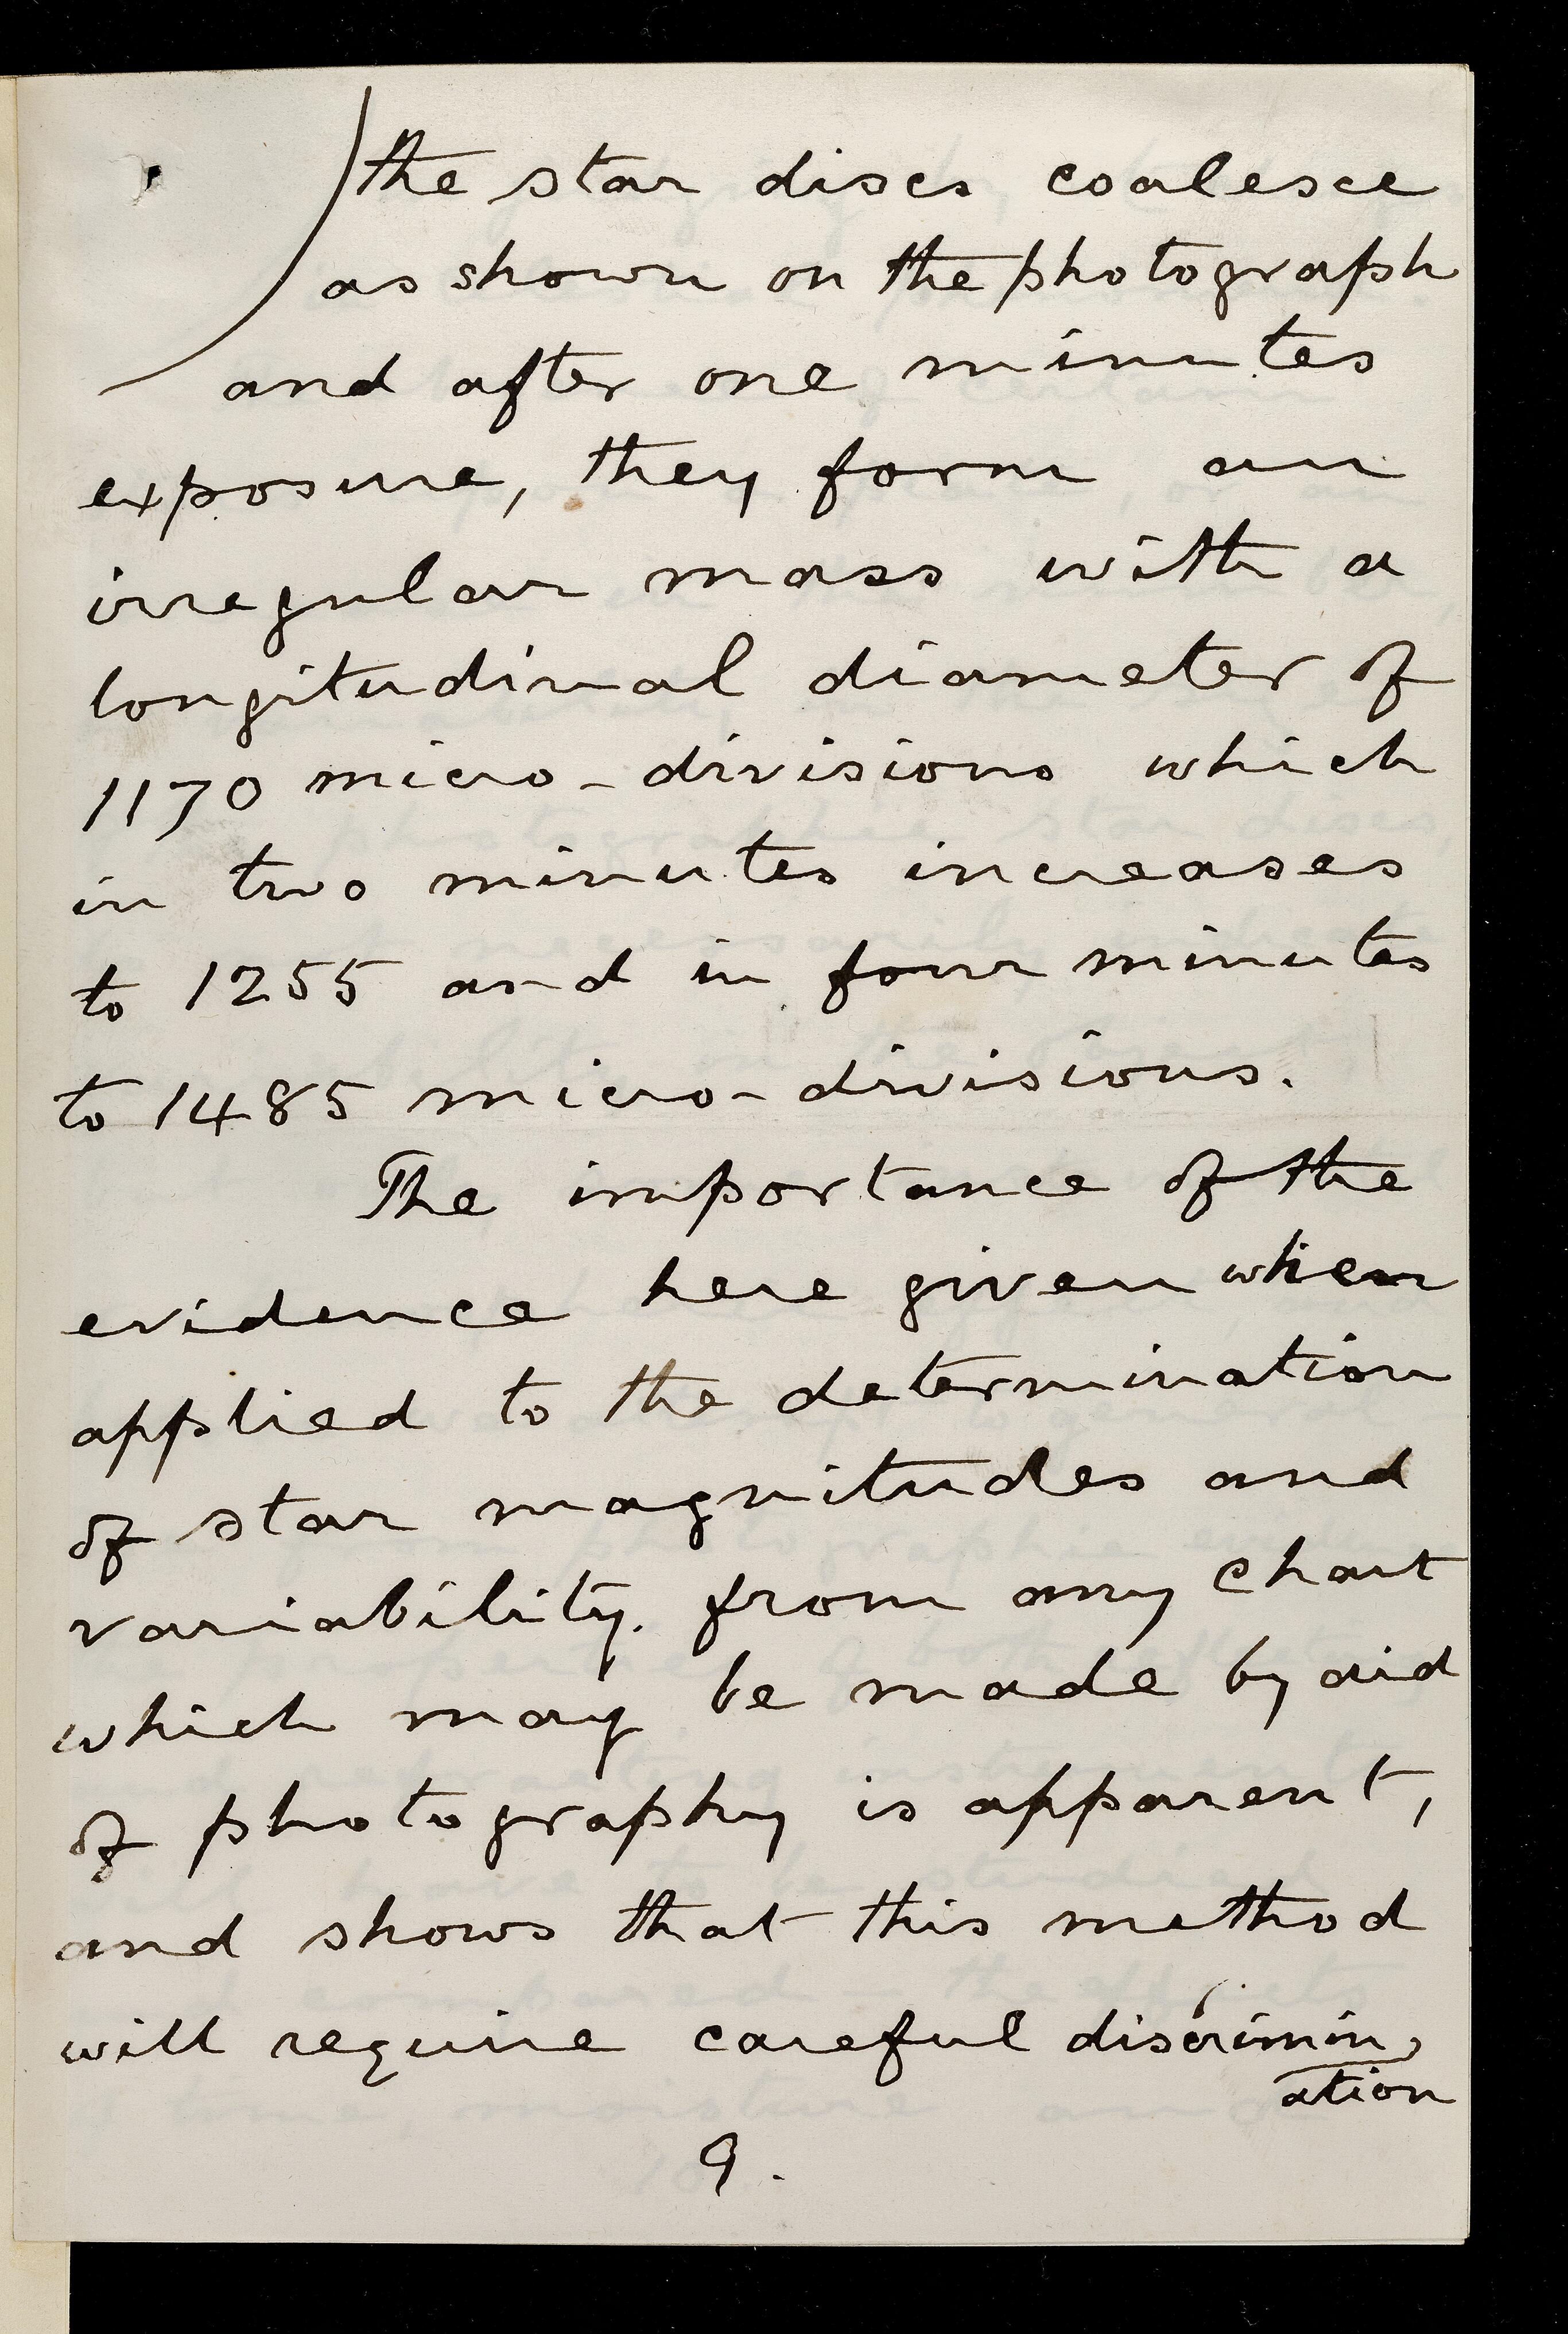 the star discs coalesce
as shown on the photograph
and after one minutes
exposure, they form an
irregular mass with a
longitudinal diameter of
1170 micro-divisions which
in two minutes increases
to 1255 and in four minutes
to 1485 micro-divisions.
The importance of the
evidence here given when
applied to the determination
of star magnitudes and
variability, from any chart
which may be made by aid
of photography is apparent,
and shows that this method
will require careful discrimin
ation
9.